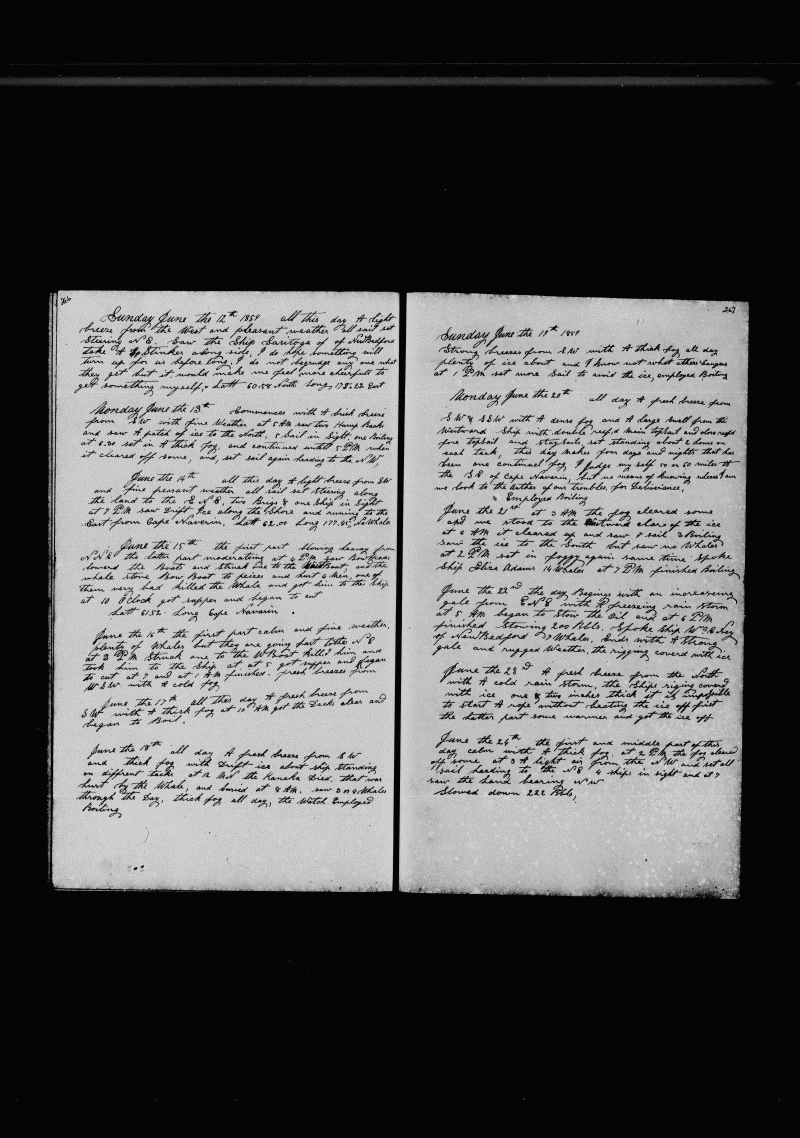 266
Sunday June the 12th 1859 all this day A light
breeze from the West and pleasant weather all sail set
Steering N E. Saw the Ship Saritoga of of New Bedford
take A Stinker along side, I do hope something will
turn up for us before long, I do not begrudge any one what
they get but it would make me feel more cheerfull to
get something myself. Latt 60.54 North Long 178.22 East
Monday June the 13th Commences with A brisk breeze
from SW with fine Weather at 5 AM saw two Hump Backs
and saw A patch of ice to the North, 5 Sail in Sight, one Boiling
at 6.30 set in A thick fog, and continued untill 5 PM when
it cleared off some, and, set sail again heading to the N.W.
June the 14th all this day A light breeze from SW
and fine pleasant weather all sail set Steering along
the land to the E N E, two Brigs & one Ship in Sight
at 7 PM saw Drift Ice along the Shore and runing to the
East from Cape Naverin, Latt 62.00 Long 177.45, No Whale
June the 15th the first part blowing heavey from
N N E the latter part moderateing at 4 PM saw Bowheads
lowerd the Boats and Struck one to the Boat, and the
whale stove Bow Boat to peices and hurt 4 Men, one of
them very bad Killed the Whale and got him to the Ship
at 10 O'Clock got supper and began to cut
Latt 61.52 Long Cape Navarin.
June the 16th the first part calm and fine weather,
plenty of Whales but they are going past to the N E
at 3 PM Struck one to the W Boat Killed him and
took him to the Ship at at 5 got supper and began
to cut at 7 and at 1 AM finished. fresh breezes from
W S W with A cold fog
June the 17th all this day A fresh breeze from
S W with A thick fog at 10 AM got the Decks clear and
began to Boil.
June the 18th all day A fresh breeze from S W
and thick fog with Drift ice about ship standing
on diffrent tacks at 12 the Kanaka Died, that was
hurt by the Whale, and buried at 8 AM. saw 3 or 4 Whales
through the Day, thick fog all day, the Watch Employed
Boiling
267
Sunday June the 19th 1859
Strong breezes from S W with A thick fog all day
plenty of ice about and I know not what others dangers
at 1 PM set more Sail to avoid the ice, employed Boiling
Monday June the 20th all day A fresh breeze from
S W & S S W with A dense fog and A large swell from the
Westward Ship with double reef'd main topsail and close reef'd
fore topsail and staysails, set standing about 2 hours on
each tack, this day makes four days and nights that has
been one continual fog, I judge my self 50 or 60 miles to
the S E of Cape Naverin, but no means of knowing where I am
we look to the Auther of our troubles, for Deliverance,
Employed Boiling
June the 21st at 3 AM the fog cleared some
and we stood to the Westward clear of the ice
at 6 AM it cleared up and saw 7 sail 3 Boiling
saw the ice to the South but saw no Whales
at 2 PM set in foggy again same time Spoke
Ship Eliza Adams 14 Whales at 7 PM finished Boiling
June the 22nd the day Begins with an increasing
gale from E N E with A freezing rain storm
at 5 AM began to Stow the Oil and at 6 PM
finished Stowing 200 Bbls, Spoke Ship Wm C Nye
of New Bedford 7 Whales, Ends with A Strong
gale and rugged Weather the rigging coverd with ice
June the 23rd A fresh breeze from the North
with A cold rain storm, the Ships riging coverd
with ice one & two inches thick it is imposible
to start A rope without beating the ice off first
the latter part some warmer and got the ice off
June the 24th the first and middle part of this
day calm with A thick fog at 2 PM the fog cleared
off some at 3 A light air from the N W and set all
sail heading to the N E 4 ships in sight and at 7
saw the Land bearing N W
Stowed down 222 Bbls,